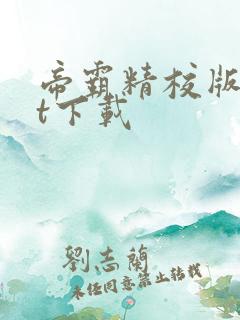 帝霸精校版
t下載
劉志蘭
未经同意禁止转载